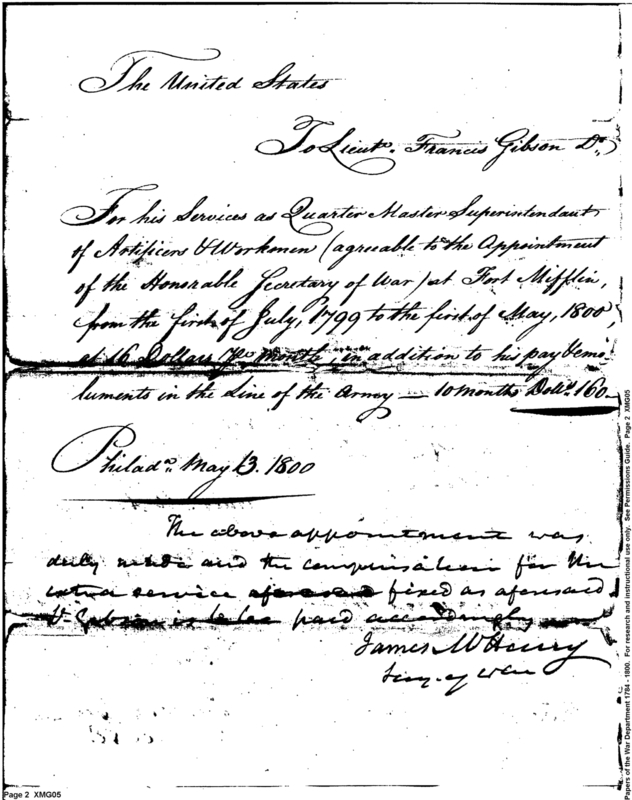 The United States
To Lieut. Francis Gibson Dr.
For his Services as Quarter Master Superintendant
of Artificers & Workmen (agreeable to the Appointment
of the Honorable Secretary of War) at Fort Mifflin,
from the first of July, 1799 to the first of May, 1800,
at 16 Dollars Per month, in addition to his pay & emo-
luments in the Line of the Army — 10 months Dolls. 160-
Philada. May 13. 1800
The above appointment was
duly made and the compensation for the
extra service fixed as aforesaid
Gibson is to be paid accordingly
James McHenry
Secy. of War
Page 2 XMG05
Papers of the War Department 1784 - 1800. For research and instructional use only. See Permissions Guide. Page 2 XMG05